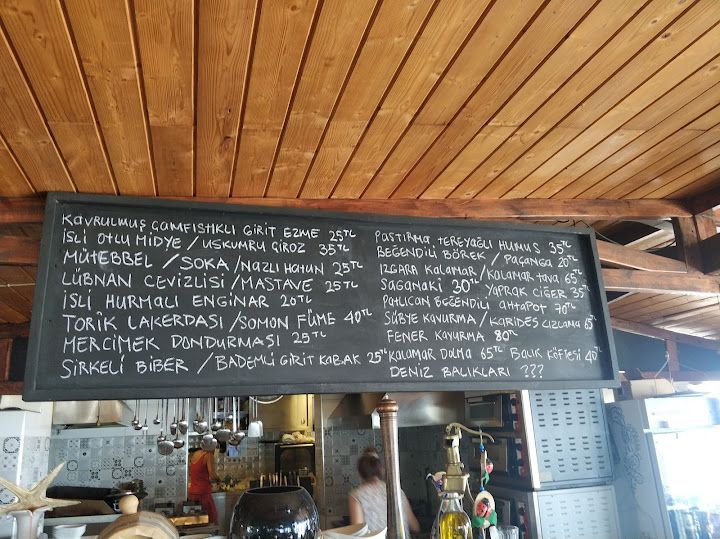 KAVRULMUŞ ÇAMFISTIKLI GİRİT EZME 25TL
İSLİ OTLU MİDYE / USKUMRU ÇİROZ 35TL
MÜTEBBEL / SOKA / NAZLI HATUN 25TL
LÜBNAN CEVİZLİSİ / MASTAVE 25TL
İSLİ HURMALI ENGINAR 20TL
TORİK LAKERDASI / SOMON FÜME 40TL
MERCİMEK DONDURMASI 25TL
SİRKELİ BİBER / BADEMLİ GİRİT KABAK 25TL
PASTIRMA, TEREYAĞLI HUMUS 35TL
BEĞENDİLİ BÖREK / PAÇANGA 20TL
IZGARA KALAMAR / KALAMAR TAVA 65TL
SAGANAKİ 30TL YAPRAK CİĞER 35TL
PATLICAN BEĞENDİLİ AHTAPOT 70TL
SÜBYE KAVURMA / KARİDES CIZLAMA 65TL
FENER KAVURMA 80TL
KALAMAR DOLMA 65TL BALIK KÖFTESİ 40TL
DENİZ BALIKLARI ???